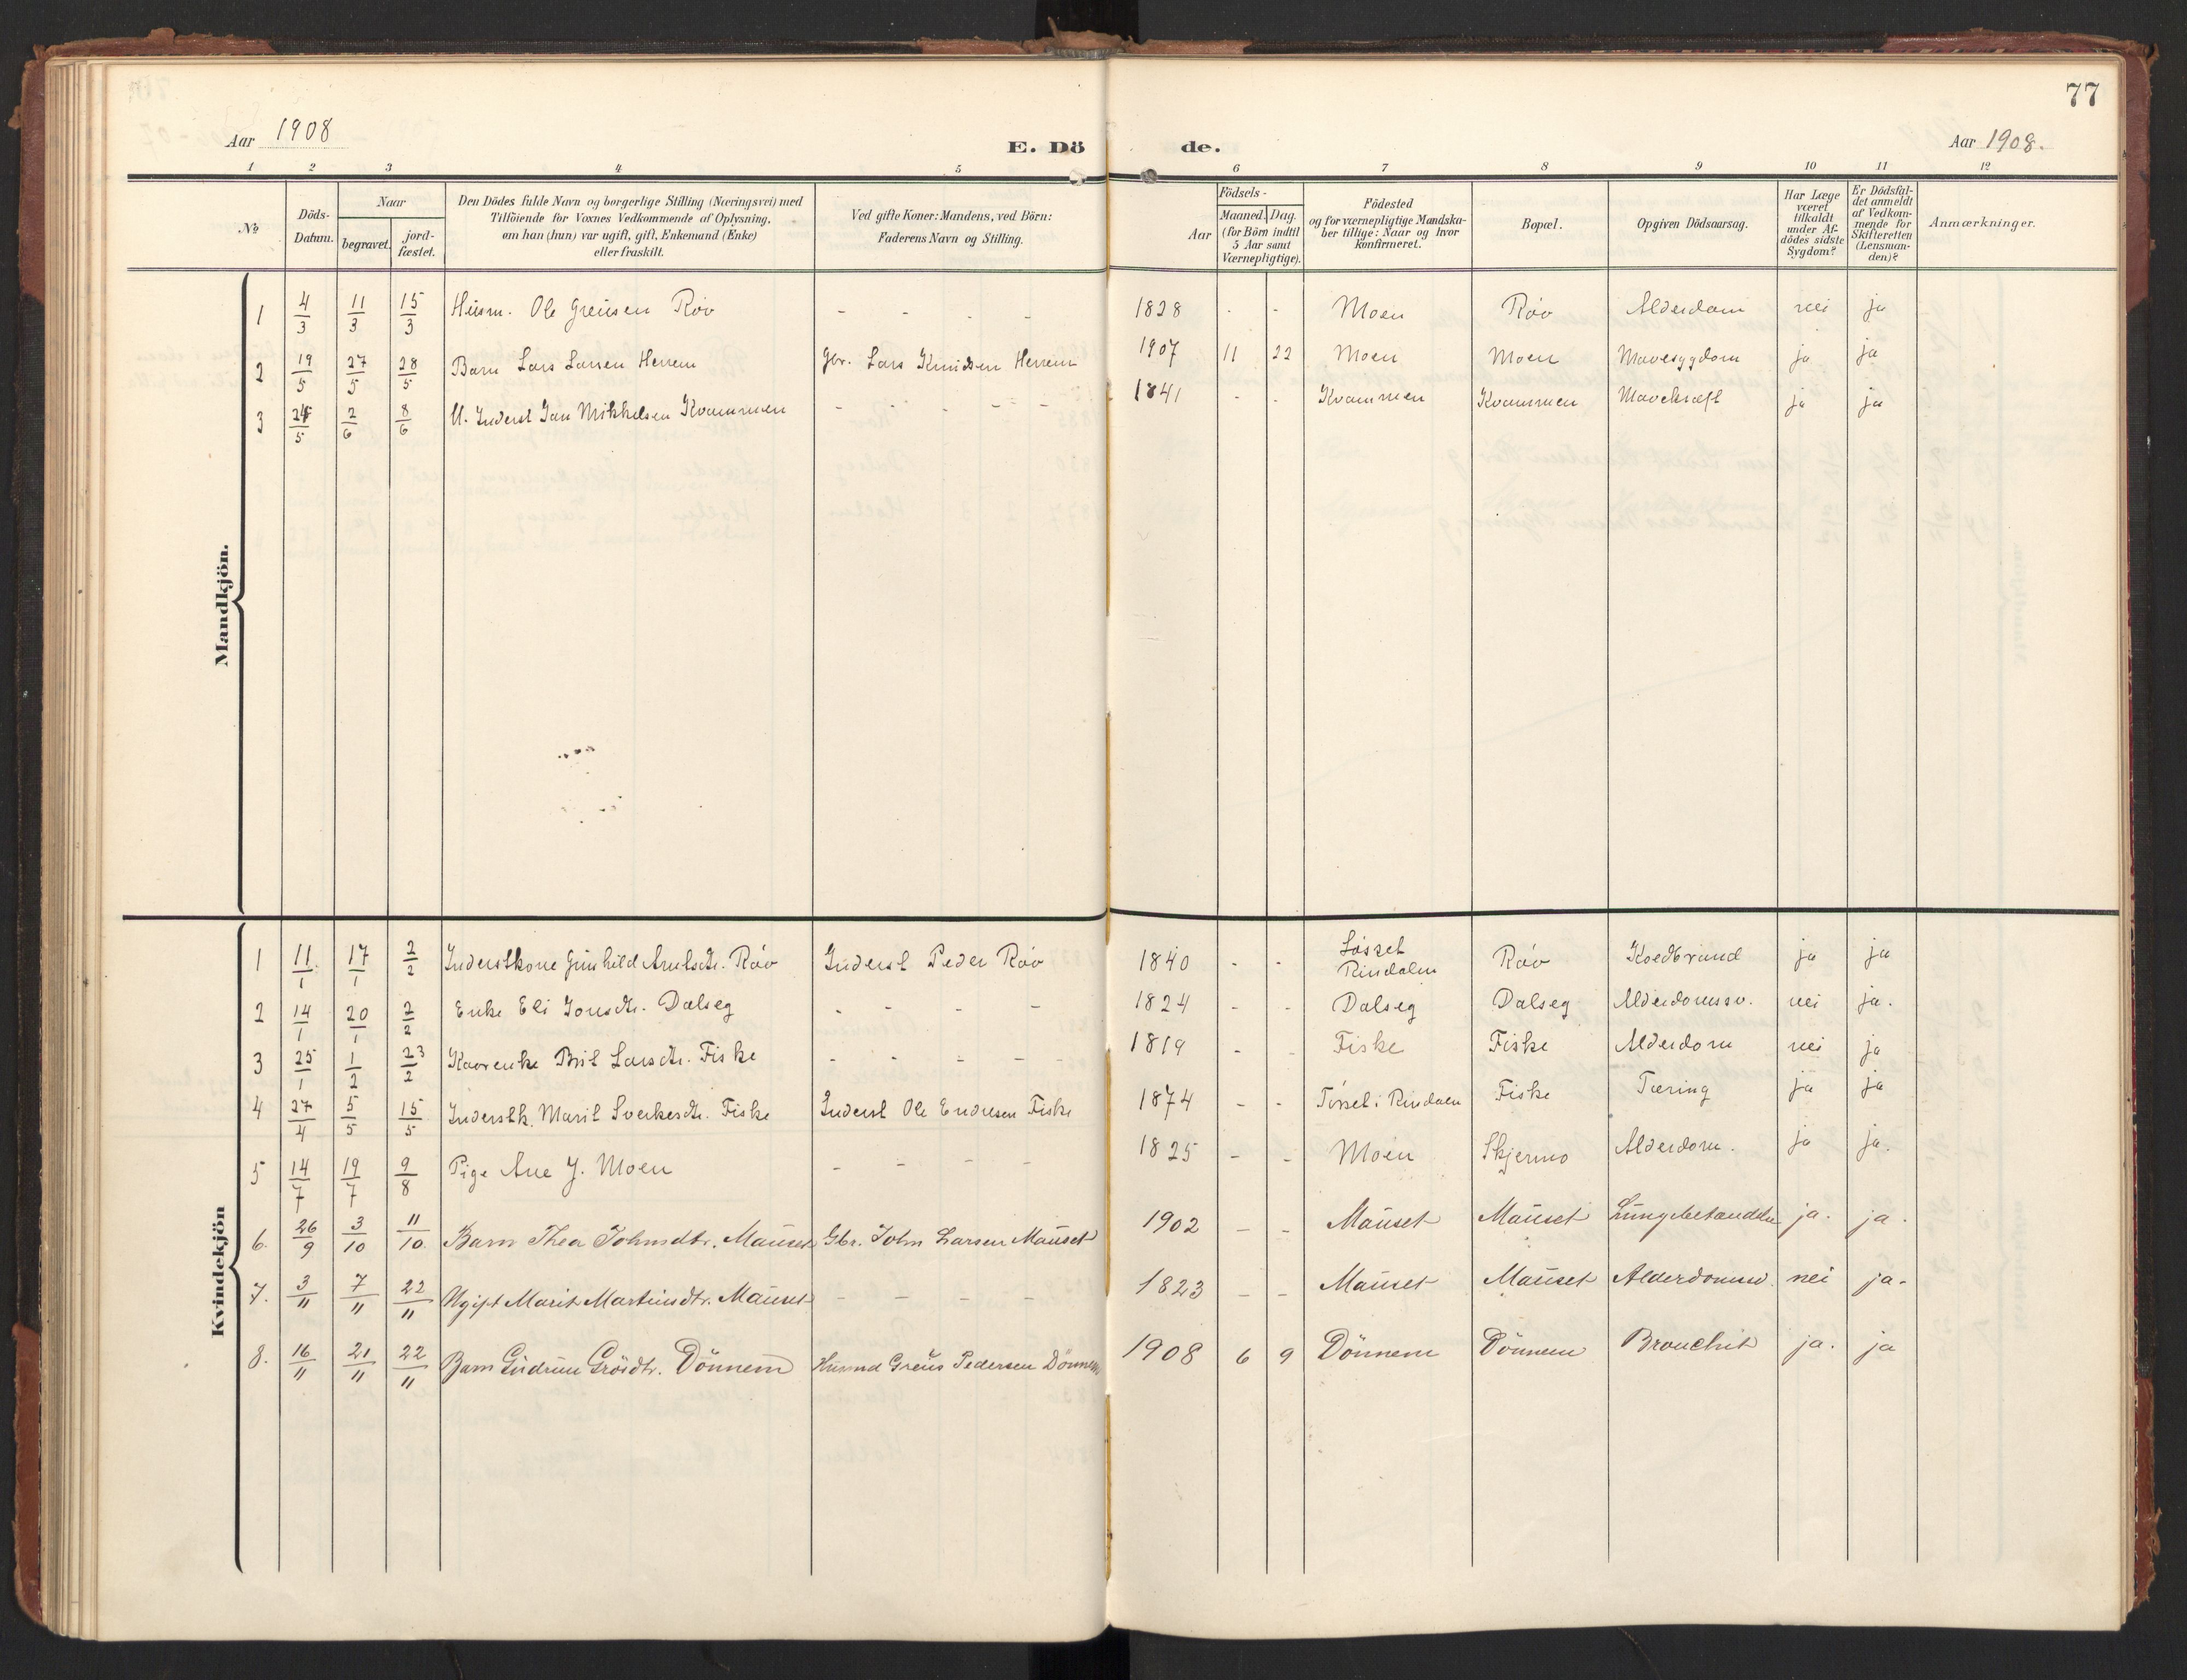 77
Aar 1908
E. Dö de.
Aar 1908.
1 2 3 4 5 6 7 8 9 10 11 12
№
Döds-Datum.
Naar
begravet.
jord-fæstet.
Den Dödes fulde Navn og borgerlige Stilling (Næringsvei) med
Tilföiende for Voxnes Vedkommende af Oplysning,
om han (hun) var ugift, gift, Enkemand (Enke)
eller fraskilt.
Ved gifte Koner: Mandens, ved Börn:
Faderens Navn og Stilling.
Födsels-
Aar
Maaned. Dag.
(for Börn indtil
5 Aar samt
Værnepligtige).
Födested
og for værnepligtige Mandska-
ber tillige: Naar og hvor
Konfirmeret.
Bopæl.
Opgiven Dödsaarsag.
Har Læge
været
tilkaldt
under Af-
dödes sidste
Sygdom?
Er Dödsfal-
det anmeldt
af Vedkom-
mende for
Skifteretten
(Lensman-
den)?
Anmærkninger.
Mandkjön.
1 4/3 11/3 15/3 Husm. Ole Greusen Röv - - - - 1828 - - Moen Röv Alderdom nei ja
2 19/5 27/5 28/5 Barn Lars Larsen Herrem Gbr. Lars Knudsen Herrem 1907 11 22 Moen Moen Mavesygdom ja ja
3 24/5 2/6 8/6 U. Inderst Jan Mikkelsen Kvammen - - - - - 1841 - - Kvammen Kvammen Mavekræft ja ja
Kvindekjön
1 11/1 17/1 2/2 Inderstkone Gunhild Arntsdtr. Röv Inderst Peder Röv 1840 - - Løsset Rindalen Röv Koldbrand ja ja
2 14/1 20/1 2/2 Enke Eli Jonsdtr. Dalseg - - - - 1824 - - Dalseg Dalseg Alderdomssv. nei ja.
3 25/1 1/2 23/2 Kaarenke Brit Larsdtr. Fiske - - - - - 1819 - - Fiske Fiske Alderdom nei ja
4 27/4 5/5 15/5 Inderstk. Marit Sverkesdtr. Fiske Inderst Ole Endresen Fiske 1874 - - Tørset i Rindalen Fiske Tæring ja ja
5 14/7 19/7 9/8 Pige Ane J. Moen - - - - 1825 - - Moen Skjermo Alderdom. ja ja.
6. 26/9 3/10 11/10. Barn Thea Johnsdtr. Mauset Gbr. John Larsen Mauset 1902 - - Mauset Mauset Lungebetændelse ja. ja.
7. 3/11 7/11 22/11 Ugift Marit Martinsdtr. Mauset - - - - 1823 - - Mauset Mauset Alderdomssv. nei ja.
8. 16/11 21/11 22/11 Barn Gudrun Gröisdtr. Dönnem Husmd Greus Pedersen Dönnem 1908 6 9 Dönnem Dönnem Bronchit ja. ja